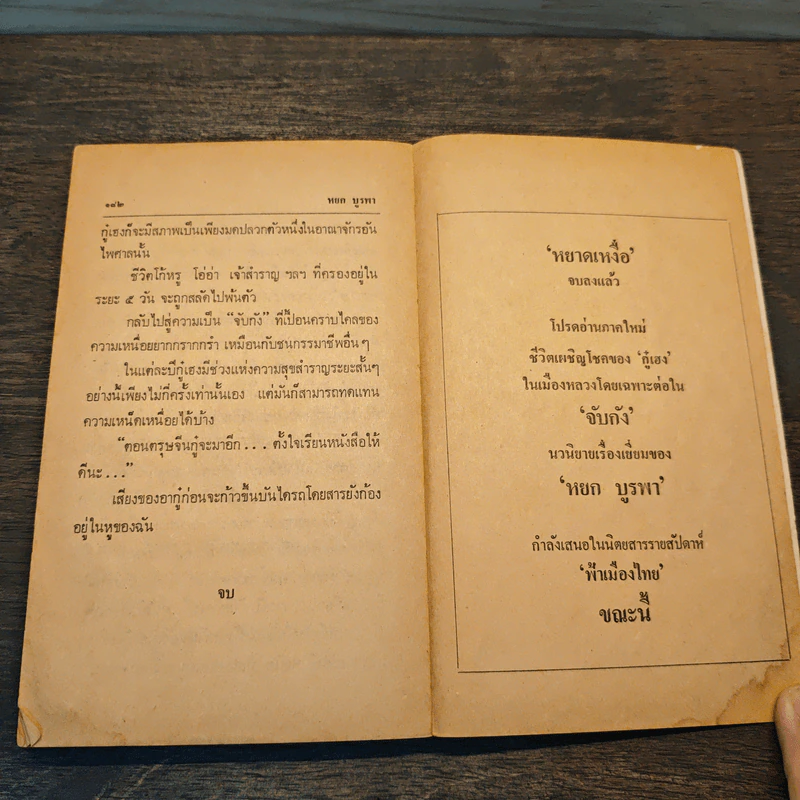 ๑๘๒ หยก บูรพา
กู๋เฮงก็จะมีสภาพเป็นเพียงมดปลวกตัวหนึ่งในอาณาจักรอัน
ไพศาลนั้น
ชีวิตโก้หรู โอ่อ่า เจ้าสำราญ ฯลฯ ที่ครองอยู่ใน
ระยะ ๕ วัน จะถูกสลัดไปพ้นตัว
กลับไปสู่ความเป็น “จับกัง” ที่เปื้อนคราบไคลของ
ความเหนื่อยยากกรากกรำ เหมือนกับชนกรรมาชีพอื่นๆ
ในแต่ละปีกู๋เฮงมีช่วงแห่งความสุขสำราญระยะสั้นๆ
อย่างนี้เพียงไม่กี่ครั้งเท่านั้นเอง แต่มันก็สามารถทดแทน
ความเหน็ดเหนื่อยได้บ้าง
“ตอนตรุษจีนกู๋จะมาอีก... ตั้งใจเรียนหนังสือให้
ดีนะ...”
เสียงของอากู๋ก่อนจะก้าวขึ้นบันไดรถโดยสารยังก้อง
อยู่ในหูของฉัน
จบ
‘หยาดเหงื่อ’
จบลงแล้ว
โปรดอ่านภาคใหม่
ชีวิตเผชิญโชคของ ‘กู๋เฮง’
ในเมืองหลวงโดยเฉพาะต่อใน
‘จับกัง’
นวนิยายเรื่องเยี่ยมของ
‘หยก บูรพา’
กำลังเสนอในนิตยสารรายสัปดาห์
‘ฟ้าเมืองไทย’
ขณะนี้